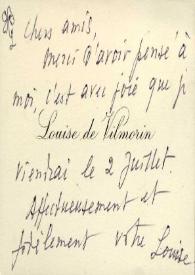 Chers amis,
merci d'avoir pensé à
moi, c'est avec joie que je
Louise de Vilmorin
viendrai le 2 Juillet.
Affectueusement et
fidèlement votre Louise